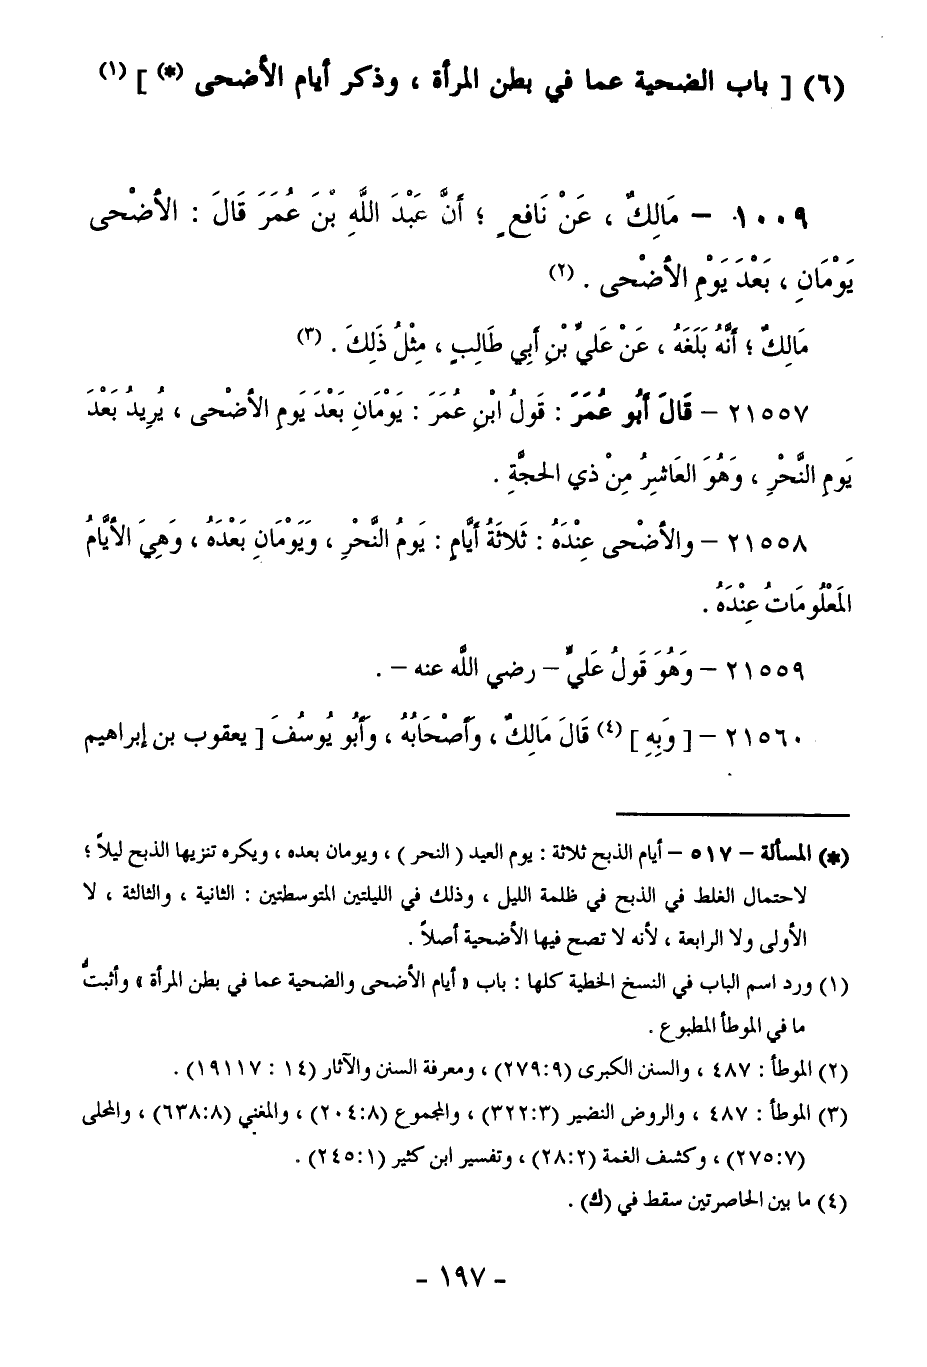 (٦) [ باب الضحية عما في بطن المرأة ، وذكر أيام الأضحى (*) ] (١)
١٠٠٩ – مَالِكٌ ، عَنْ نَافِعٍ ؛ أَنَّ عَبْدَ اللَّهِ بْنَ عُمَرَ قَالَ : الأَضْحى
يَوْمَانِ ، بَعْدَ يَوْمِ الأَضْحى . (٢)
مَالِكٌ ؛ أَنَّهُ بَلَغَهُ ، عَنْ عَلَيِّ بْنِ أَبِي طَالِبٍ ، مِثْلُ ذَلِكَ . (٣)
٢١٥٥٧ – قَالَ أَبُو عُمَرَ : قَولُ ابْنِ عُمَرَ : يَوْمَانِ بَعْدَ يَومِ الأَضْحى ، يُرِيدُ بَعْدَ
يَومِ النَّحْرِ ، وَهُوَ العَاشِرُ مِنْ ذي الحجَّةِ .
٢١٥٥٨ – والأَضْحى عِنْدَهُ : ثَلاثَةُ أَيَّامٍ : يَومُ النَّحْرِ ، وَيَوْمَانِ بَعْدَهُ ، وَهِيَ الأَيَّامُ
المَعْلُومَاتُ عِنْدَهُ .
٢١٥٥٩ – وَهُوَ قَولُ عَليٍّ – رضي اللَّه عنه – .
٢١٥٦٠ – [ وَبِهِ ] (٤) قَالَ مَالِكٌ ، وَأَصْحَابُهُ ، وَأَبُو يُوسُفَ [ يعقوب بن إبراهيم
(*) المسألة – ٥١٧ – أيام الذبح ثلاثة : يوم العيد ( النحر ) ، ويومان بعده ، ويكره تنزيها الذبح ليلاً ؛
لاحتمال الغلط في الذبح في ظلمة الليل ، وذلك في الليلتين المتوسطتين : الثانية ، والثالثة ، لا
الأولى ولا الرابعة ، لأنه لا تصح فيها الأضحية أصلاً .
(١) ورد اسم الباب في النسخ الخطية كلها : باب « أيام الأضحى والضحية عما في بطن المرأة » وأثبتُّ
ما في الموطأ المطبوع .
(٢) الموطأ : ٤٨٧ ، والسنن الكبرى (٢٧٩:٩) ، ومعرفة السنن والآثار (١٤ : ١٩١١٧) .
(٣) الموطأ : ٤٨٧ ، والروض النضير (٣٢٢:٣) ، والمجموع (٢٠٤:٨) ، والمغني (٦٣٨:٨) ، والمحلى
(٢٧٥:٧) ، وكشف الغمة (٢٨:٢) ، وتفسير ابن كثير (٢٤٥:١) .
(٤) ما بين الحاصرتين سقط في (ك) .
- ١٩٧ -